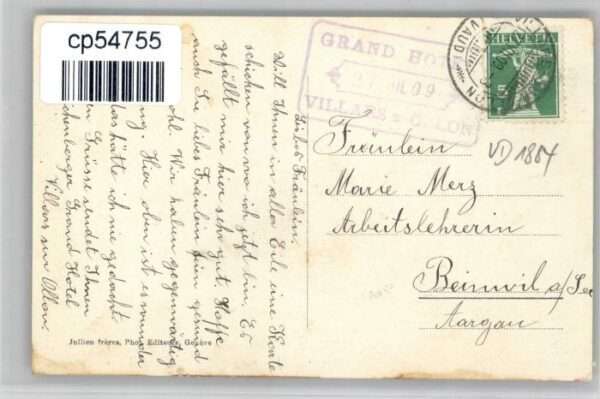 cp54755
GRAND HOTEL
09
VILLARS s. OLLON
VAUD
HELVETIA
5
VD 1884
Liebes Fräulein.
Will Ihnen in aller Eile eine Karte
schicken von wo ich jetzt bin, Es
gefällt mir hier sehr gut. Hoffe
auch Sie liebes Fräulein seien gesund
wohl. Wir haben gegenwärtig
Hier oben ist es wunder
das hätte ich nie gedacht.
Grüsse sendet Ihnen
Grand Hotel
Villars sur Ollon.
Fräulein
Marie Merz
Arbeitslehrerin
Beinwil a/See
Aargau
Jullien frères, Phot. Editeurs, Genève